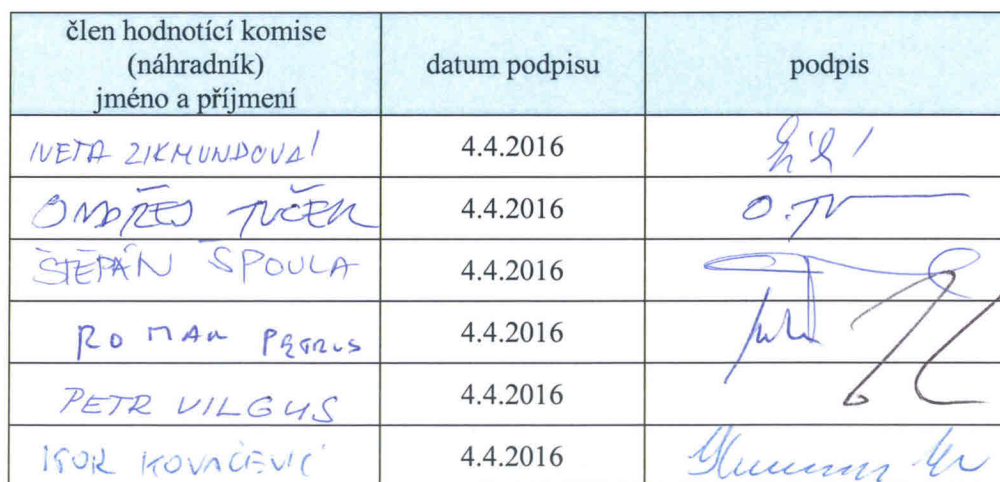 člen hodnotící komise
(náhradník)
jméno a příjmení
datum podpisu
podpis
IVETA ZIKMUNDOVÁ 4.4.2016
ONDŘEJ TUČEK 4.4.2016 O.
ŠTĚPÁN ŠPOULA 4.4.2016
ROMAN PETRUS 4.4.2016
PETR VILGUS 4.4.2016
IGOR KOVAČEVIĆ 4.4.2016